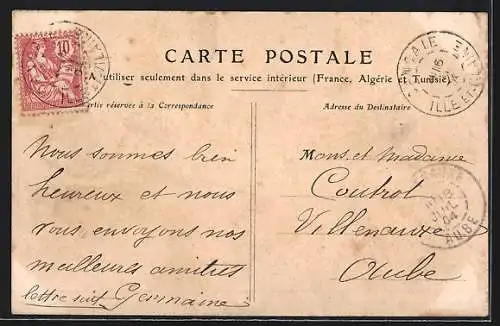 10
CARTE POSTALE
A utiliser seulement dans le service intérieur (France, Algérie et Tunisie)
Partie réservée à la Correspondance
Adresse du Destinataire
ILLE-ET-
AUBE
Nous sommes bien
heureux et nous
vous envoyons nos
meilleures amitiés
lettre suit Germaine
Mons. et Madame
Coutrot
Villenauxe
Aube